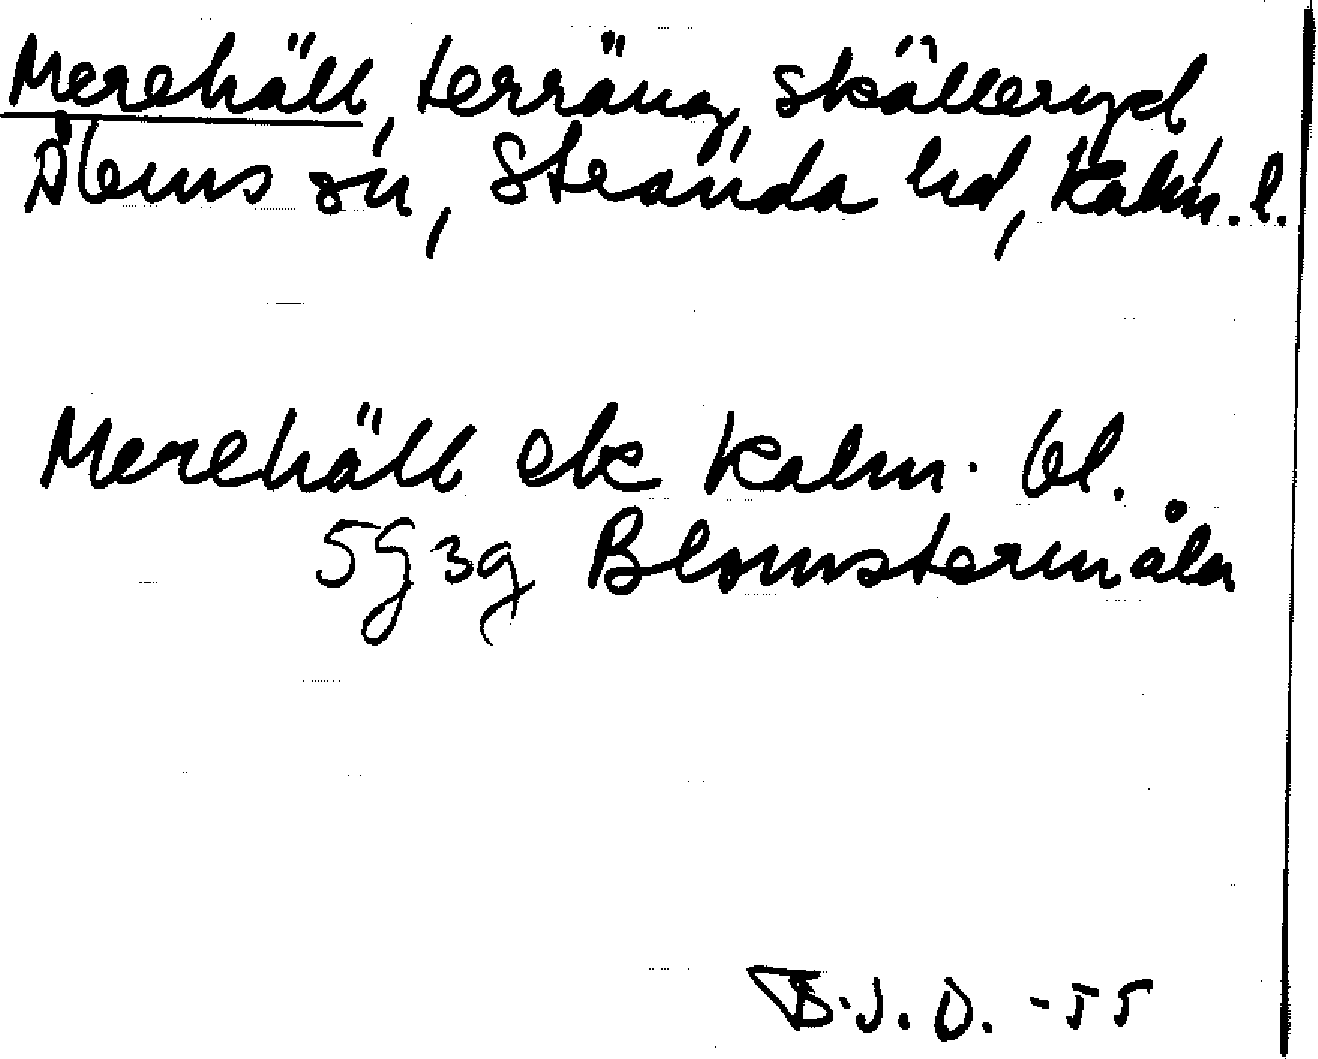 Merehäll, terräng, Skälleryd
Ålems sn, Stranda hd, Kalm. l.
Merehäll ek Kalm. bl.
5G3g Blomstermåla
B.J.O. -55